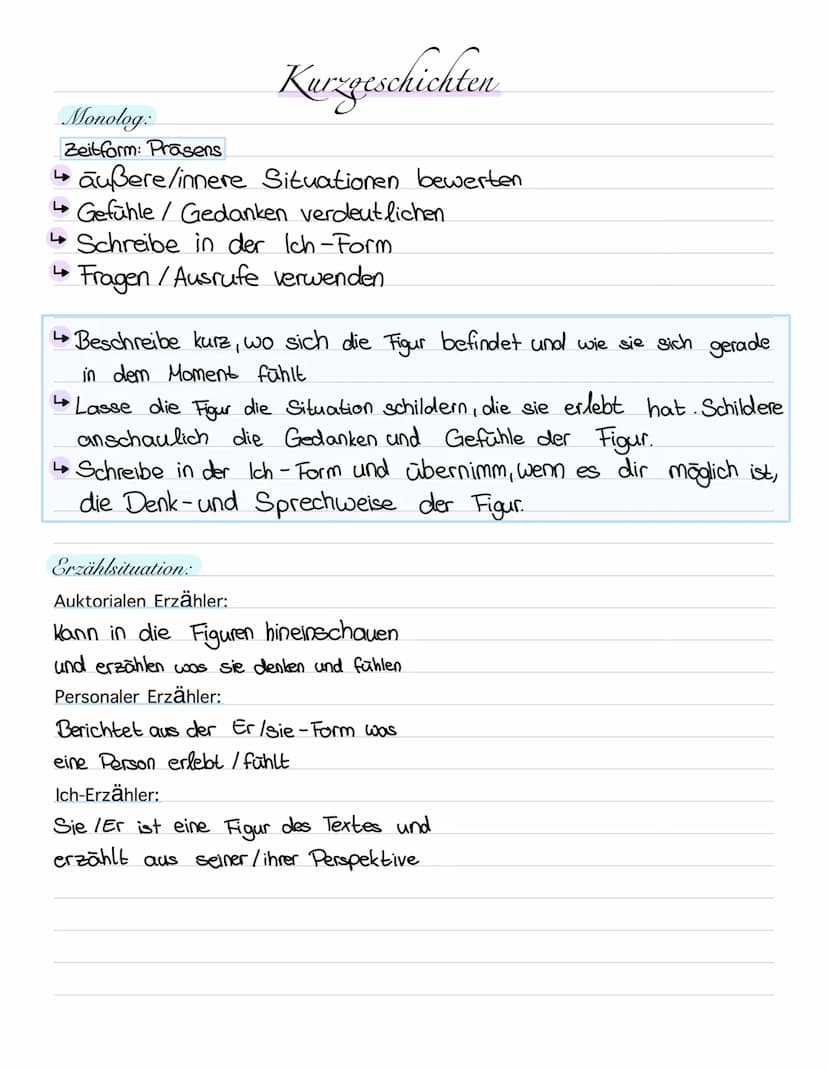 Kurzgeschichten
Monolog:
Zeitform: Präsens
↳ äußere/innere Situationen bewerten
↳ Gefühle / Gedanken verdeutlichen
↳ Schreibe in der Ich-Form
↳ Fragen / Ausrufe verwenden
↳ Beschreibe kurz, wo sich die Figur befindet und wie sie sich gerade
in dem Moment fühlt
↳ Lasse die Figur die Situation schildern, die sie erlebt hat. Schildere
anschaulich die Gedanken und Gefühle der Figur.
↳ Schreibe in der Ich-Form und übernimm, wenn es dir möglich ist,
die Denk- und Sprechweise der Figur.
Erzählsituation:
Auktorialen Erzähler:
Kann in die Figuren hineinschauen
und erzählen was sie denken und fühlen
Personaler Erzähler:
Berichtet aus der Er/sie-Form was
eine Person erlebt / fühlt
Ich-Erzähler:
Sie / Er ist eine Figur des Textes und
erzählt aus seiner / ihrer Perspektive